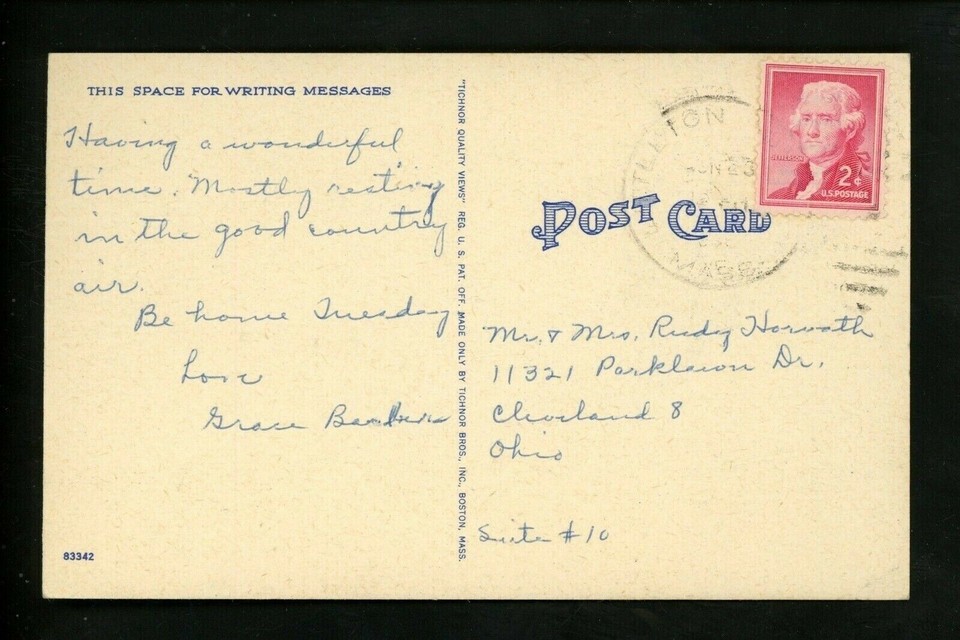 THIS SPACE FOR WRITING MESSAGES
Having a wonderful
time. Mostly resting
in the good country
air.
Be home Tuesday
Love
Grace
83342
"TICHNOR QUALITY VIEWS" REG. U. S. PAT. OFF. MADE ONLY BY TICHNOR BROS., INC., BOSTON, MASS.
POST CARD
JEFFERSON
2¢
U.S. POSTAGE
MASS
Mr. & Mrs. Rudy Horvath
11321 Parklawn Dr.
Cleveland 8
Ohio
Suite #10